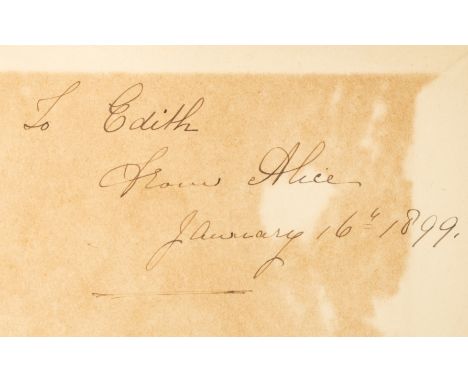 To Edith
From Alice
January 16" 1899.